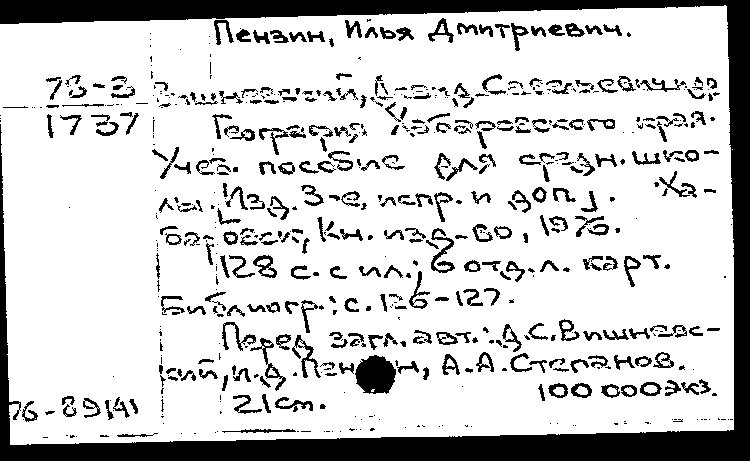 Пензин, Илья Дмитриевич.
78-3 Вишневский, Давид Савельевич и др
1737 География Хабаровского края.
Учеб. пособие для средн. шко-
лы. [Изд. 3-е, испр. и доп.]. Ха-
баровск, Кн. изд-во, 1976.
128 с. с ил.; 6 отд. л. карт.
Библиогр.: с. 126-127.
Перед загл. авт.: Д.С. Вишневс-
кий, И.Д. Пензин, А.А. Степанов.
76-89141 21 cm. 100 000 экз.